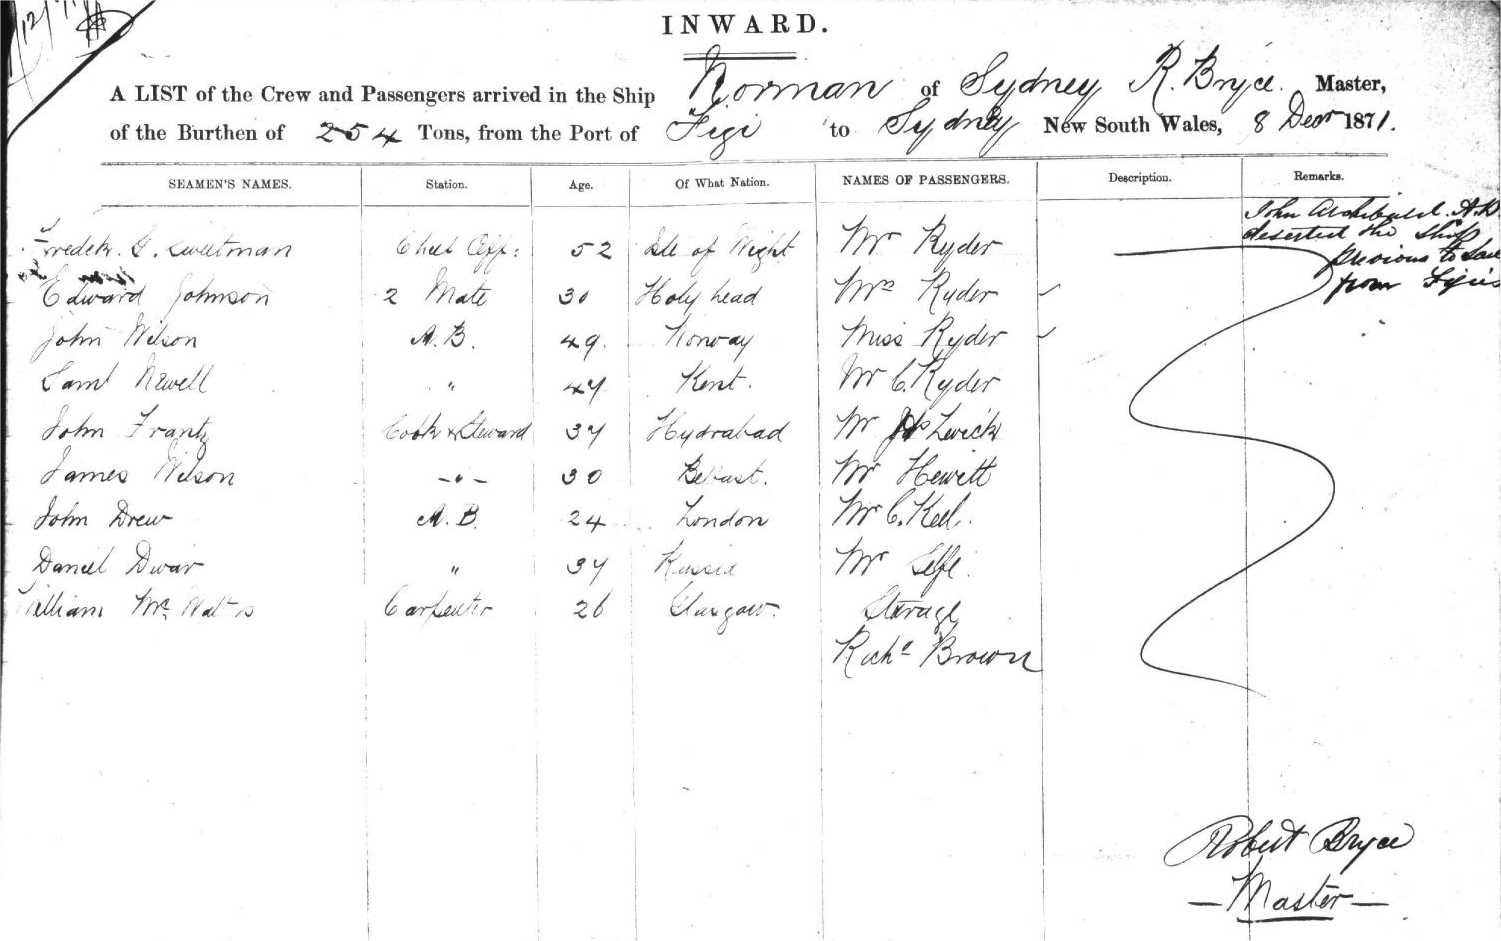 12/71
INWARD.
A LIST of the Crew and Passengers arrived in the Ship Norman of Sydney R. Bryce. Master,
of the Burthen of 254 Tons, from the Port of Figi to Sydney New South Wales, 8 Decr 1871.
SEAMEN'S NAMES. Station. Age. Of What Nation. NAMES OF PASSENGERS. Description. Remarks.
John Archibald. A.B
deserted the Ship
previous to
from Figi
Fredek. G. Sweetman Cheef Off: 52 Isle of Wight Mr Ryder
Edward Johnson 2 Mate 30 Holy head Mrs Ryder
John Wilson A.B. 49. Norway Miss Ryder
Saml Newell " 47 Kent. Mr C. Ryder
John Frantz Cook & Steward 37 Hydrabad Mr Lewick
James Wilson -"- 30 Belfast. Mr Hewitt
John Drew A.B. 24 London Mr C. Keel.
Daniel Dwar " 37 Russia Mr Selfe.
William Mc Carpenter 26 Glasgow. Sterage
Richd Brown
Robert Bryce
— Master —